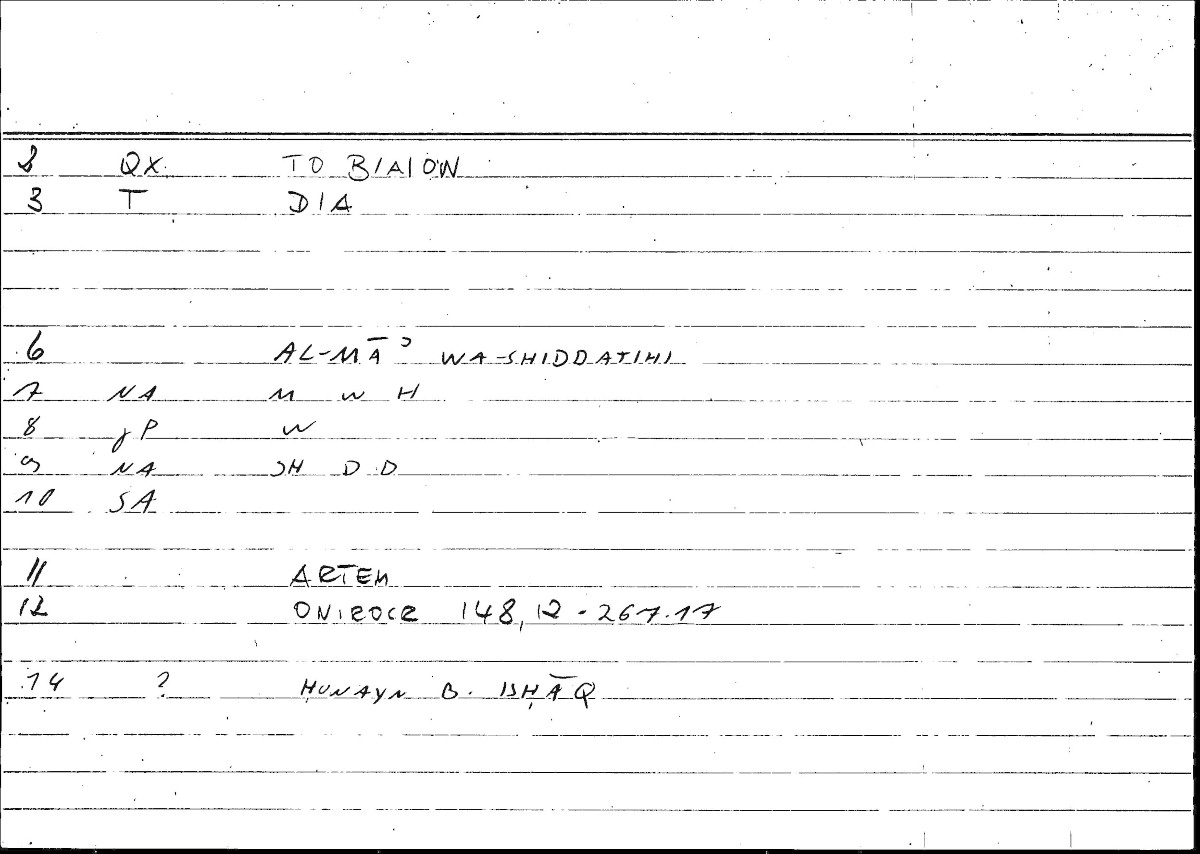 2 QX. TO BIAION
3 T DIA
6 AL-MĀʾ WA-SHIDDATIHI
7 NA M W H
8 gP W
9 NA SH D D
10 SA
11 ARTEM
12 ONIROCR 148,12-267.17
14 ? ḤUNAYN B. ISḤĀQ